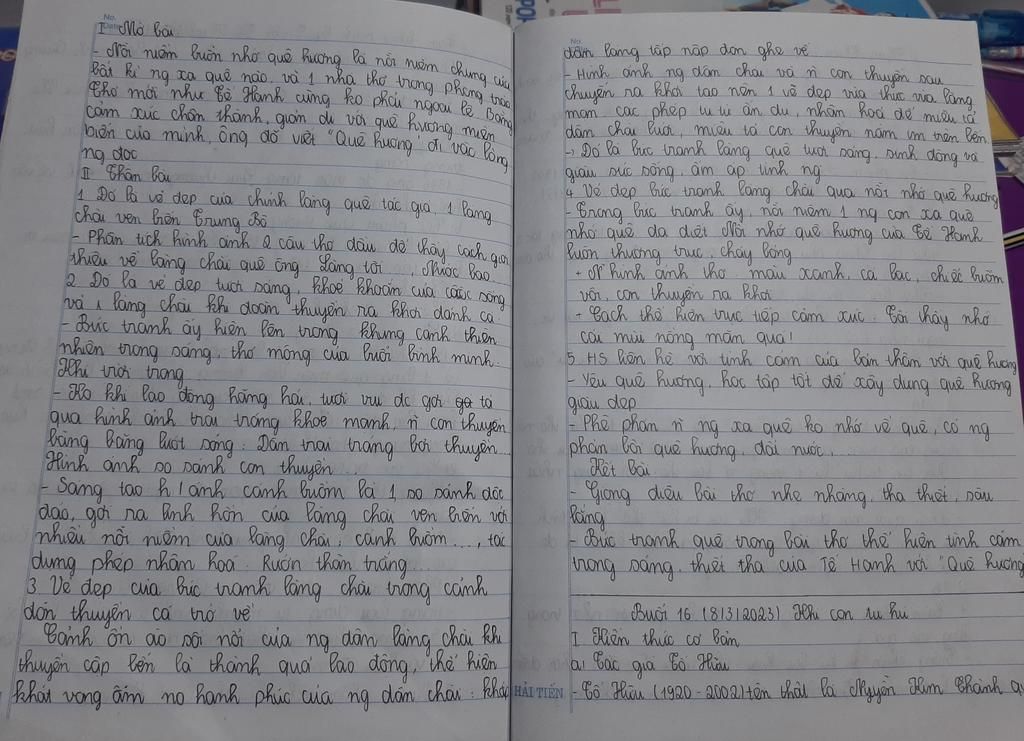 No.
Date
I Mở bài
- Nỗi niềm buồn nhớ quê hương là nỗi niềm chung của
bất kì ng xa quê nào. và 1 nhà thơ trong phong trào
Thơ mới như Tế Hanh cũng ko phải ngoại lệ. Bằng
cảm xúc chân thành, giản dị với quê hương miền
biển của mình, ông đã viết "Quê hương" đi vào lòng
ng đọc
II Thân bài
1 Đó là vẻ đẹp của chính làng quê tác giả, 1 làng
chài ven biển Trung Bộ
- Phân tích hình ảnh 2 câu thơ đầu để thấy cách giới
thiệu về làng chài quê ông. Làng tôi ... Nước bao
2 Đó là vẻ đẹp tươi sáng, khoẻ khoắn của cuộc sống
và 1 làng chài khi đoàn thuyền ra khơi đánh cá
- Bức tranh ấy hiện lên trong khung cảnh thiên
nhiên trong sáng, thơ mộng của buổi bình minh.
Khi trời trong
- Ko khí lao động hăng hái, tươi vui đc gợi tả
qua hình ảnh trai tráng khoẻ mạnh, n con thuyền
băng băng lướt sóng: Dân trai tráng bơi thuyền...
Hình ảnh so sánh con thuyền
- Sáng tạo h/ảnh cánh buồm là 1 so sánh độc
đáo, gợi ra linh hồn của làng chài ven biển với
nhiều nỗi niềm của làng chài: cánh buồm ..., tác
dụng phép nhân hoá: Rướn thân trắng...
3 Vẻ đẹp của bức tranh làng chài trong cảnh
đón thuyền cá trở về
Cảnh ồn ào sôi nổi của ng dân làng chài khi
thuyền cập bến là thành quả lao động, thể hiện
khát vọng ấm no hạnh phúc của ng dân chài: khắp
No.
Date
dân làng tấp nập đón ghe về
- Hình ảnh ng dân chài và n con thuyền sau
chuyến ra khơi tạo nên 1 vẻ đẹp vừa thực vừa lãng
mạn. các phép tu từ ẩn dụ, nhân hoá để miêu tả
dân chài lưới, miêu tả con thuyền nằm im trên bến
→ Đó là bức tranh làng quê tươi sáng, sinh động và
giàu sức sống, ấm áp tình ng
4 Vẻ đẹp bức tranh làng chài qua nỗi nhớ quê hương
- Trong bức tranh ấy, nỗi niềm 1 ng con xa quê
nhớ quê da diết. Nỗi nhớ quê hương của Tế Hanh
luôn thường trực, cháy bỏng
+ N hình ảnh thơ: màu xanh, cá bạc, chiếc buồm
vôi, con thuyền ra khơi
+ Cách thể hiện trực tiếp cảm xúc: Tôi thấy nhớ
cái mùi nồng mặn quá!
5. HS liên hệ với tình cảm của bản thân với quê hương
- Yêu quê hương, học tập tốt để xây dựng quê hương
giàu đẹp
- Phê phán n ng xa quê ko nhớ về quê, có ng
phản bội quê hương, đất nước...
Kết bài
- Giọng điệu bài thơ nhẹ nhàng, tha thiết, sâu
lắng
- Bức tranh quê trong bài thơ thể hiện tình cảm
trong sáng, thiết tha của Tế Hanh với "Quê hương
Buổi 16 (8/3/2023) Khi con tu hú
I Kiến thức cơ bản
a, Tác giả Tố Hữu
HẢI TIẾN
- Tố Hữu (1920 - 2002) tên thật là Nguyễn Kim Thành